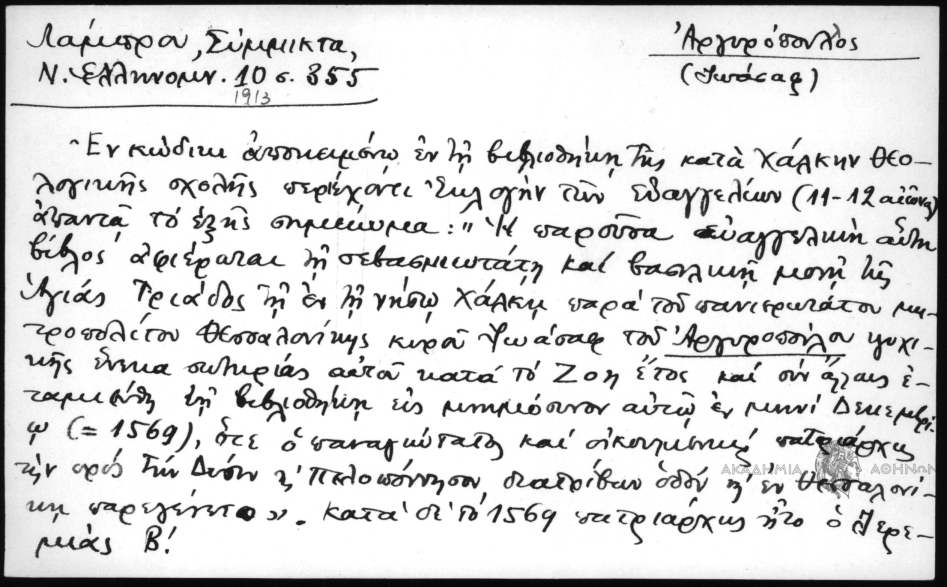 Λάμπρου, Σύμμικτα,
Ν. Ἑλληνομν. 10 σ. 355
1913
Ἀργυρόπουλος
(Ἰωάσαφ)
Ἐν κώδικι ἀποκειμένῳ ἐν τῇ βιβλιοθήκῃ τῆς κατὰ Χάλκην Θεο-
λογικῆς σχολῆς περιέχοντι Ἐκλογὴν τῶν εὐαγγελίων (11-12 αἰῶνος)
ἀπαντᾷ τὸ ἑξῆς σημείωμα: "Ἡ παροῦσα εὐαγγελικὴ αὕτη
βίβλος ἀφιέρωται τῇ σεβασμιωτάτῃ καὶ βασιλικῇ μονῇ τῆς
Ἁγίας Τριάδος τῇ ἐν τῇ νήσῳ Χάλκῃ παρὰ τοῦ πανιερωτάτου μη-
τροπολίτου Θεσσαλονίκης κυροῦ Ἰωάσαφ τοῦ Ἀργυροπούλου ψυχι-
κῆς ἕνεκα σωτηρίας αὐτοῦ κατὰ τὸ Ζοη ἔτος καὶ σὺν ἄλλαις ἐ-
ταμιεύθη τῇ βιβλιοθήκῃ εἰς μνημόσυνον αὐτῷ ἐν μηνὶ Δεκεμβρί-
ῳ (= 1569), ὅτε ὁ παναγιώτατος καὶ οἰκουμενικὸς πατριάρχης
τὴν πρὸς τὴν Δύσιν ἢ Πελοπόννησον διατρίβων ὁδὸν ἐν Θεσσαλονί-
κῃ παρεγένετο». Κατὰ δὲ τὸ 1569 πατριάρχης ἦτο ὁ Ἱερε-
μίας Β!
ΑΚΑΔΗΜΙΑ ΑΘΗΝΩΝ